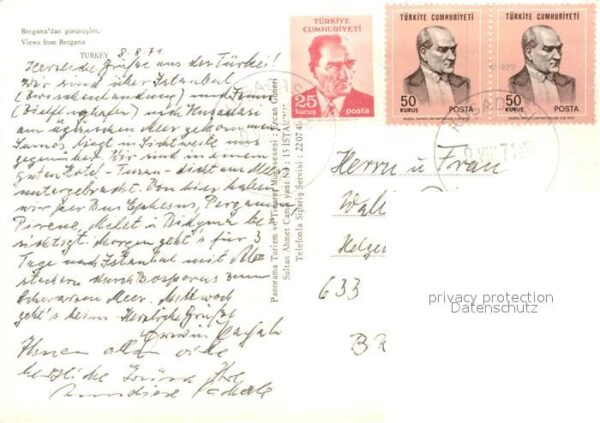 Bergama'dan görünüşler.
Views from Bergama
TURKEY
8.8.71
Herzliche Grüße aus der Türkei!
Wir sind über Istanbul
(Zwischenlandung) und Izmir
(Zielflughafen) nach Kusadasi
am ägäischen Meer gekommen.
Samos liegt in Sichtweite uns
gegenüber. Wir sind in einem
guten Hotel - Tusan - dicht am Meer
untergebracht. Von hier haben
wir per Bus Ephesus, Pergamon
Priene, Milet u Didyma be
sichtigt. Morgen geht's für 3
Tage nach Istanbul mit Ab
stechern durch Bosporus zum
Schwarzen Meer. Mittwoch
geht's heim. Herzliche Grüße
Erwin
Ihnen allen viele
herzliche Grüße Ihre
Panorama Turizm ve Ticaret Müessesesi : Ercan Güneri
Sultan Ahmet Camii yanı No : 15 İSTANBUL
Telefonla Sipariş Servisi : 22074
TÜRKİYE
CUMHURİYETİ
25
kuruş
posta
TÜRKİYE CUMHURİYETİ
50
KURUŞ
POSTA
TÜRKİYE CUMHURİYETİ
50
KURUŞ
POSTA
Herrn u Frau
Wal
Helge
633
privacy protection
Datenschutz